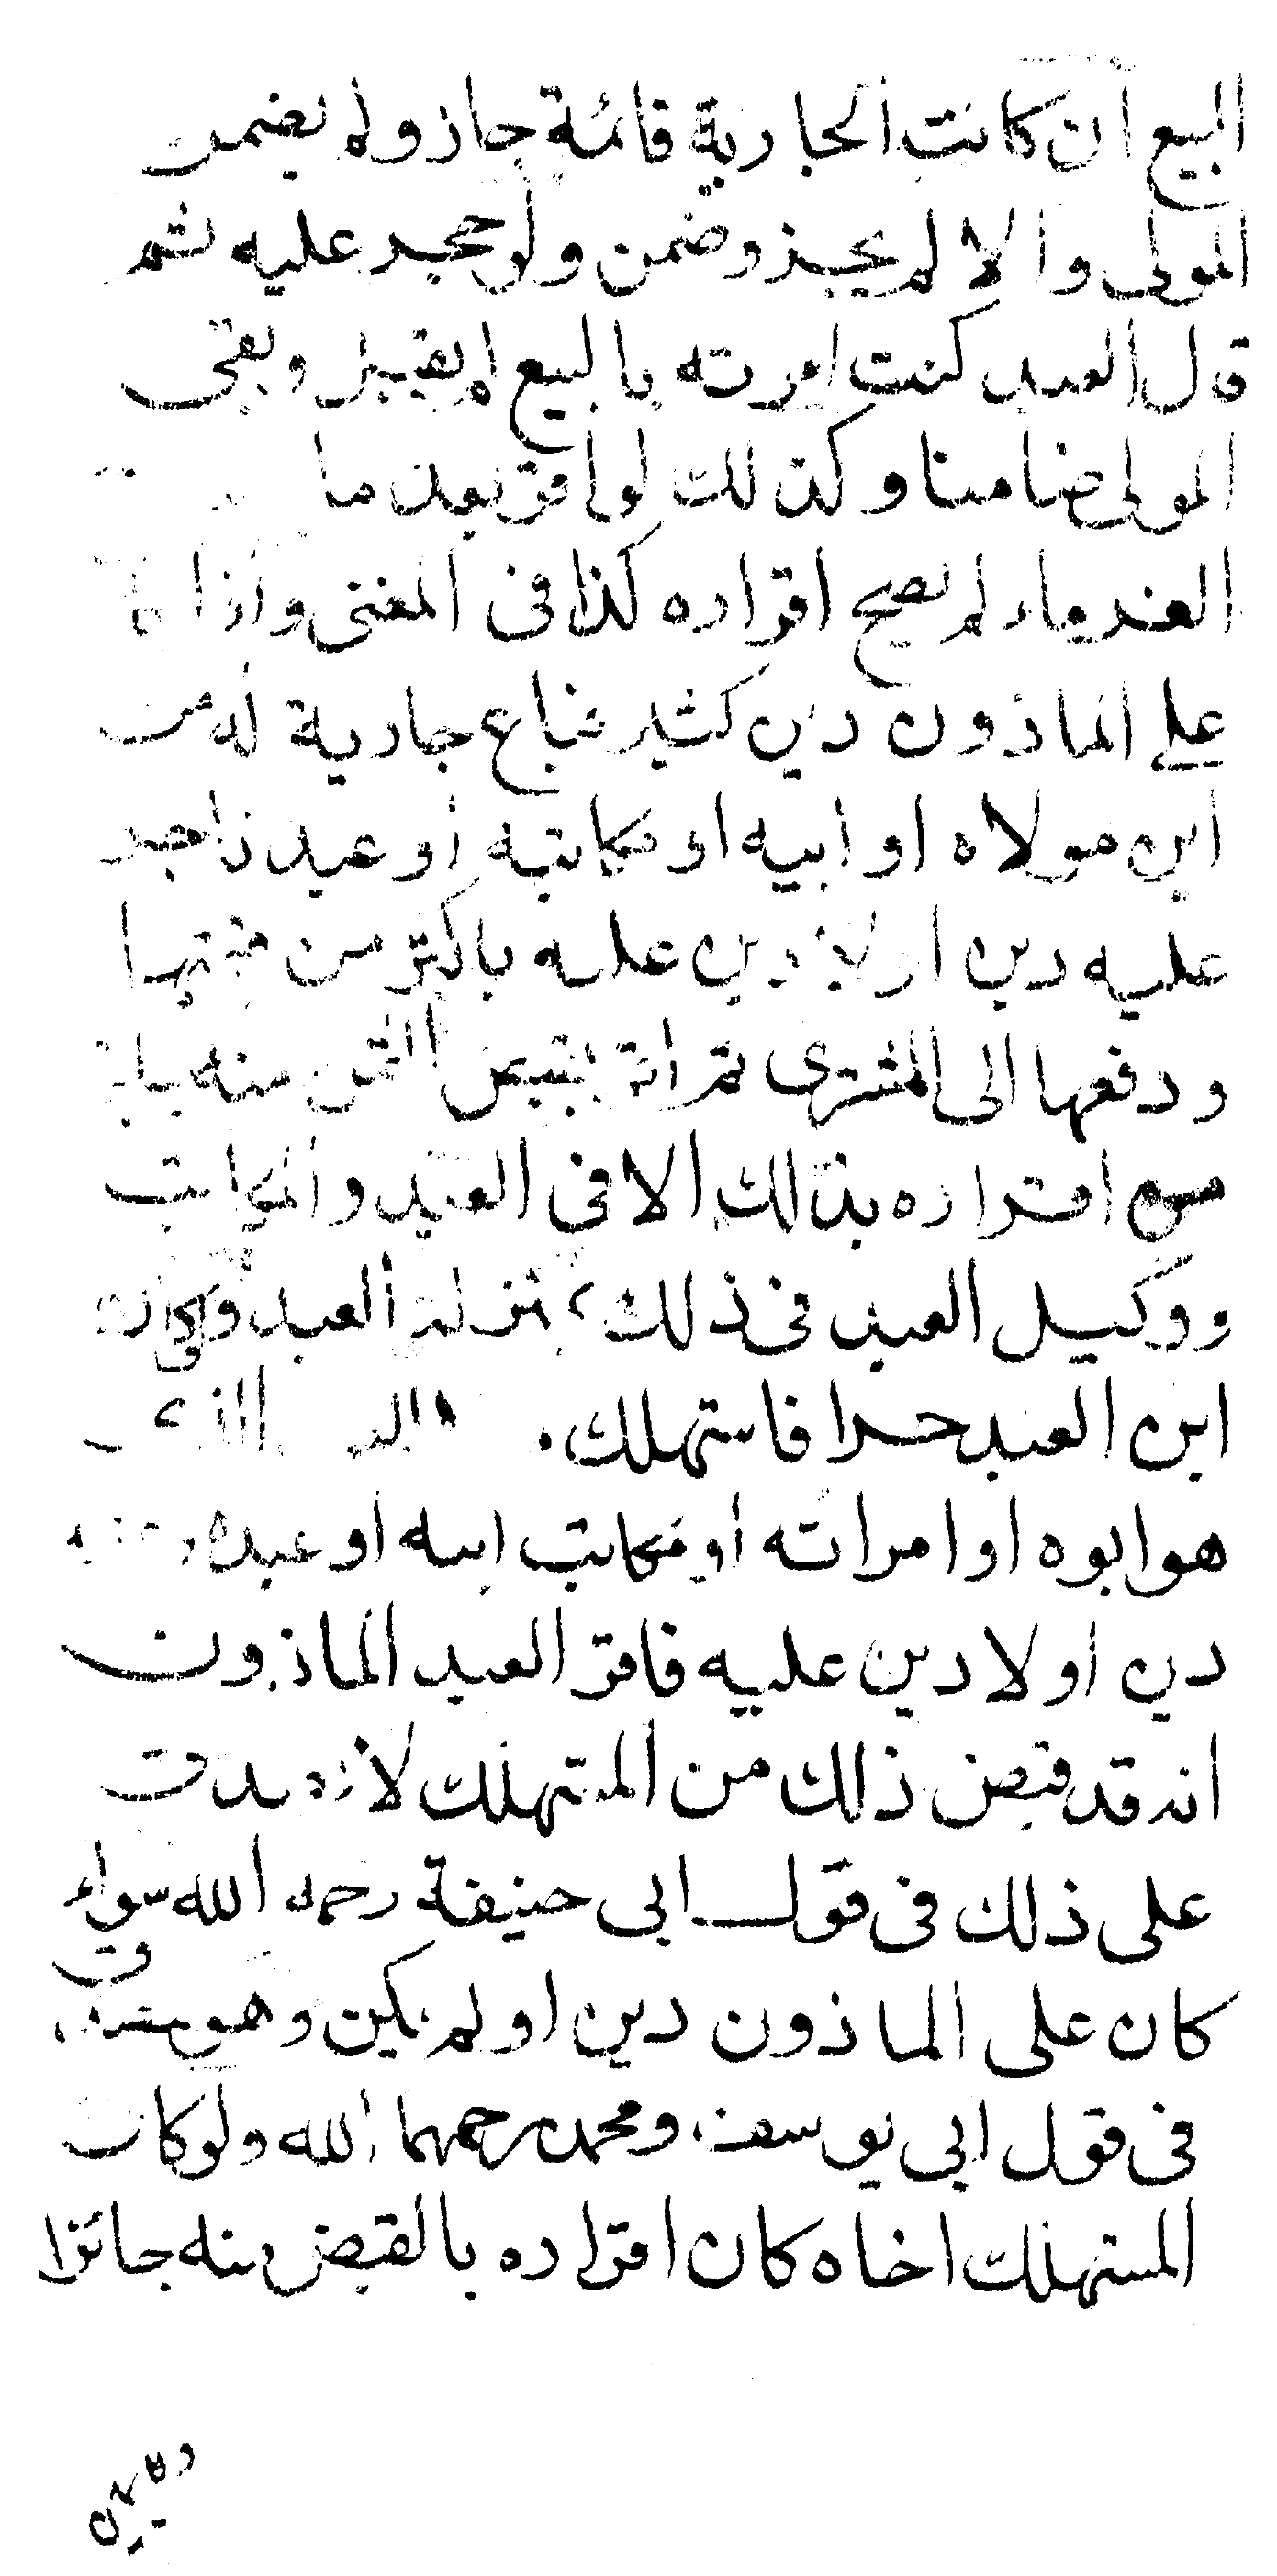 البيع ان كانت الجارية قائمة جاز ولم يضمن
المولى والا لم يجز وضمن ولو جحد عليه ثم
قال العبد كنت امرته بالبيع لم يقبل وبقى
المولى ضامنا وكذلك لو اقر بعد ما
الغرماء لم يصح اقراره كذا فى المغنى واذا
على الماذون دين كثير فباع جارية له من
ابن مولاه او ابيه او مكاتبه او عبد تاجر
عليه دين او لا دين عليه باكثر من قيمتها
ودفعها الى المشترى ثم اقر بقبض الثمن منه جاز
مع اقراره بذلك الا فى العبد والمكاتب
ووكيل العبد فى ذلك بمنزلة العبد ولو كان
ابن العبد حرا فاستهلك
هو ابوه او امراته او مكاتب ابنه او عبده وعليه
دين او لا دين عليه فاقر العبد الماذون
انه قد قبض ذلك من المستهلك لا يصدق
على ذلك فى قول ابى حنيفة رحمه الله سواء
كان على الماذون دين او لم يكن وهو مصدق
فى قول ابى يوسف ومحمد رحمهما الله ولو كان
المستهلك اخاه كان اقراره بالقبض منه جائزا